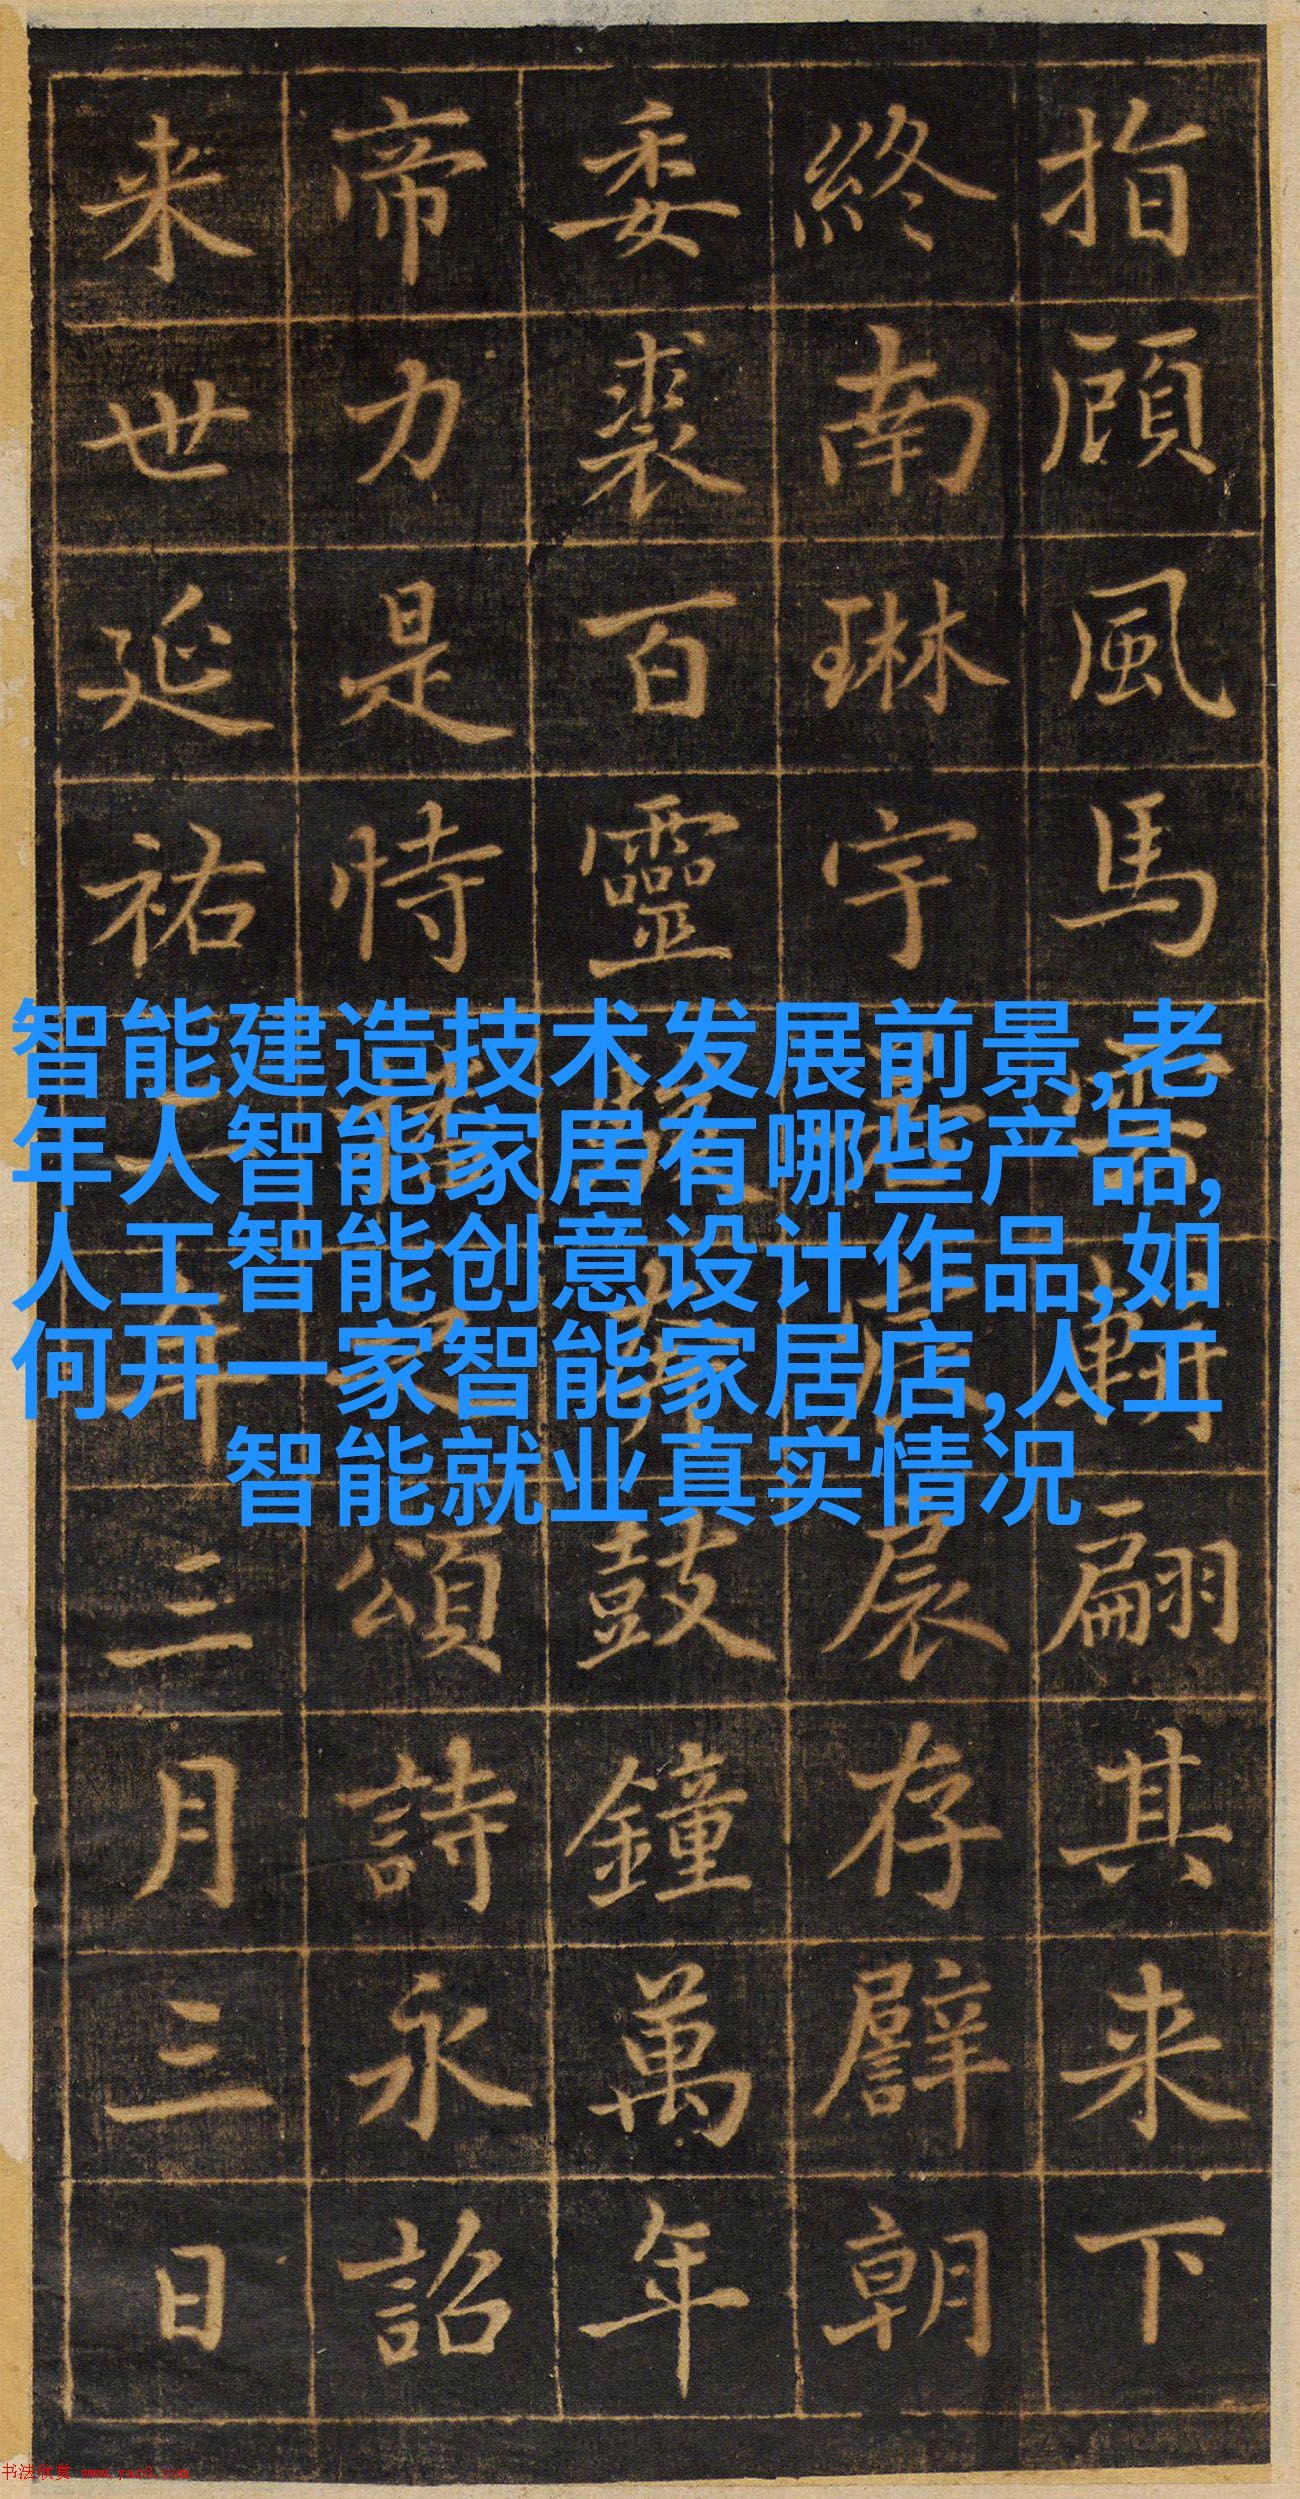 指顧風馬雲軿翩其来下
終南琳宇扆存躃朝
委裘百靈鼓鐘萬年
帝力是恃頌詩永詔
来世延祐年三月三日
智能建造技术发展前景,老
年人智能家居有哪些产品,
人工智能创意设计作品,如
何开一家智能家居店,人工
智能就业真实情况
书法欣赏 www.yac8.com